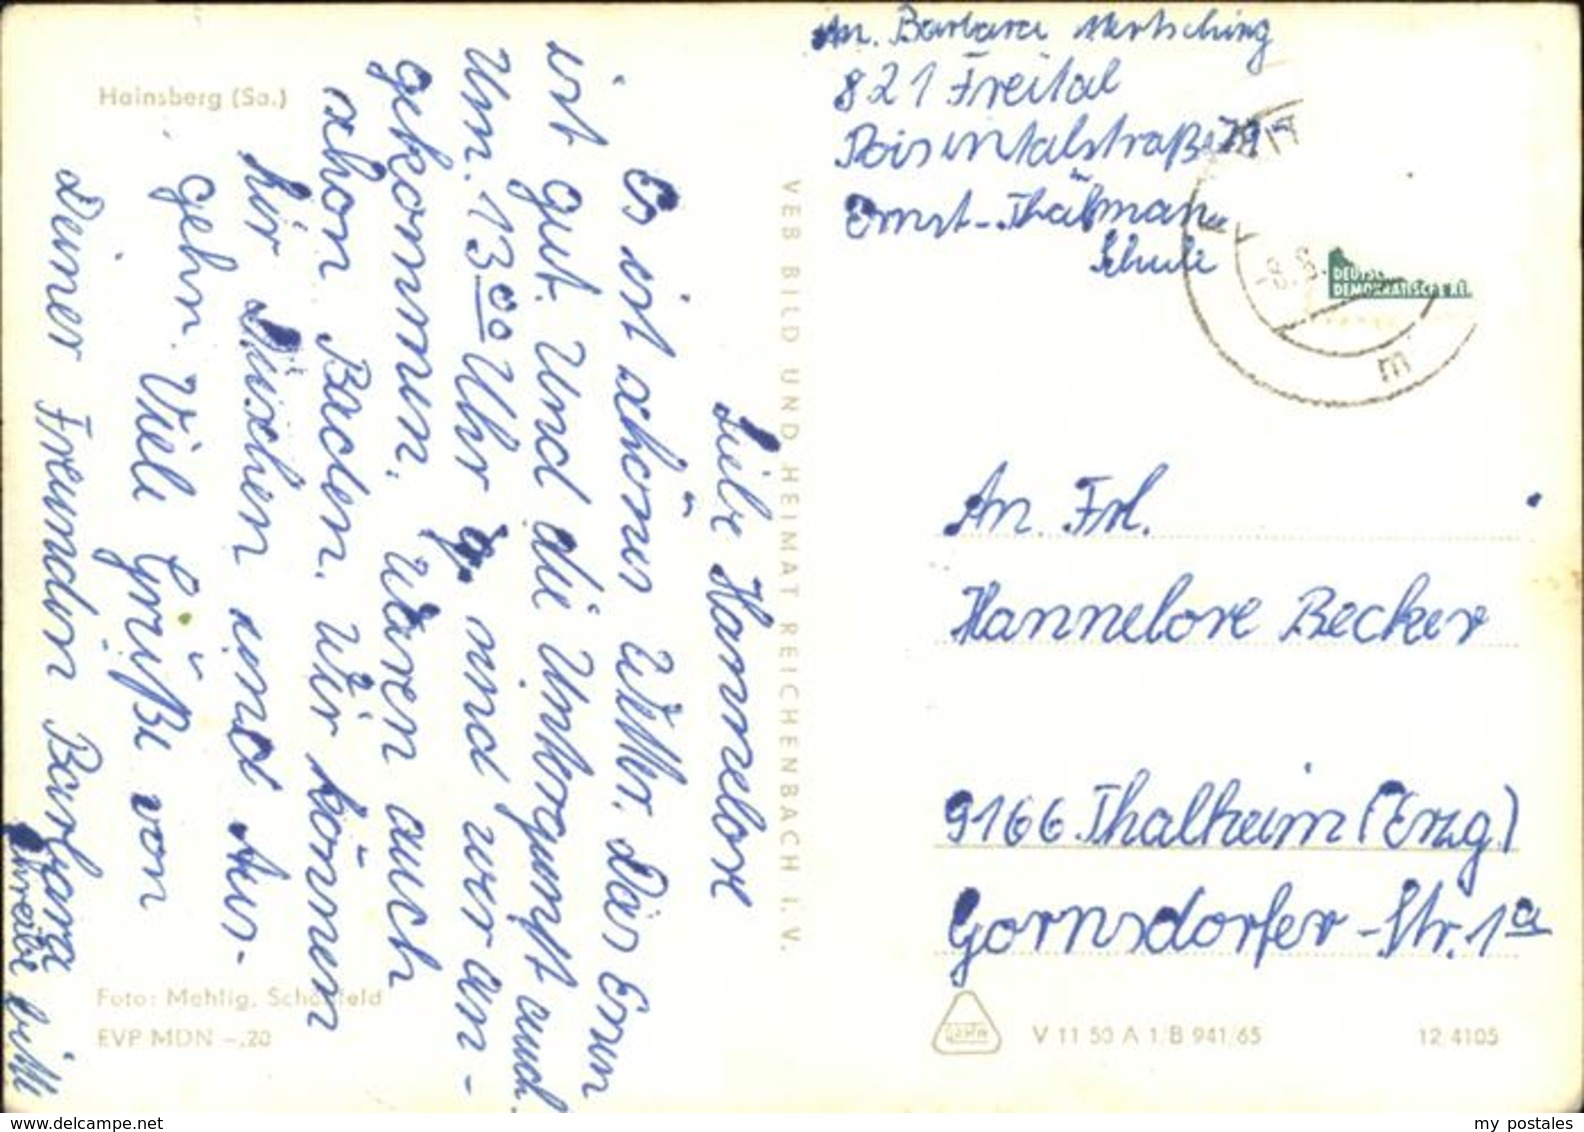 Hainsberg (Sa.)
Liebe Hannelore
Es ist schönes Wetter. Das Essen
ist gut. Und die Unterkunft auch.
Um 13 00 Uhr sind wir an-
gekommen. Waren auch
schon Baden. Wir können
hir Duschen und Aus-
gehn. Viele Grüße von
Deiner Freundin Barbara
Schreibe bitte
Foto: Mehlig, Schönfeld
EVP MDN -.20
VEB BILD UND HEIMAT REICHENBACH I. V.
An. Barbara Mertsching
821 Freital
Poisentalstraße 79
Ernst-Thälmann
Schule
DEUTSCHE
DEMOKRATISCHE RE
-8.8.
m
An Frl.
Hannelore Becker
9166 Thalheim (Erzg.)
Gornsdorfer-Str. 1a
V 11 50 A 1/B 941/65
12/4105
my postales
www.delcampe.net